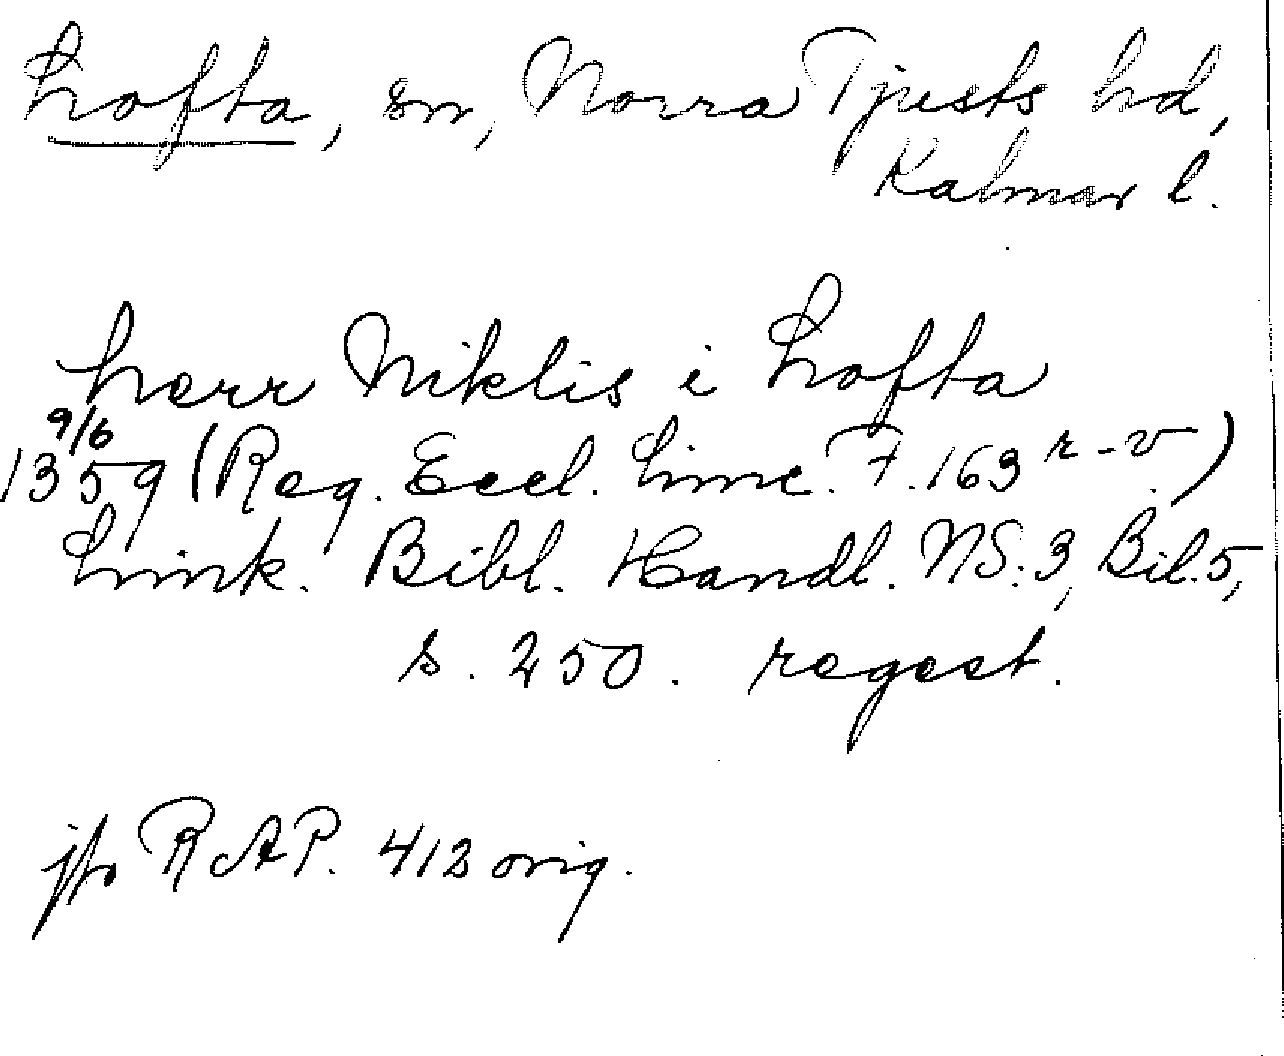 Lofta, sn, Norra Tjusts hd,
Kalmar l.
herr Niklis i Lofta
9/6
1359 (Reg. Eccl. Linc. F. 163 r-v)
Link. Bibl. Handl. NS. 3, Bil. 5,
s. 250. regest.
jfr RAP. 413 orig.